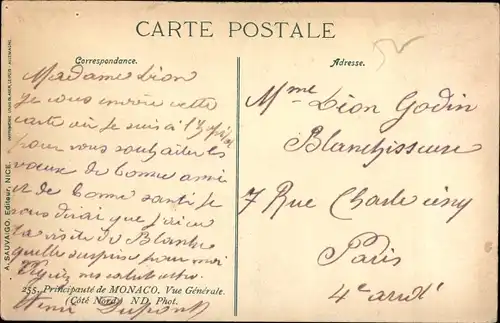 CARTE POSTALE
Correspondance.
Adresse.
Madame Lion
je vous envoie cette
carte où je suis à l'
pour vous souhaiter les
voeux de bonne année
et de bonne santé je
vous dirai que j'ai eu
la visite de Blanche
quelle surprise pour moi
Henri Dupont
255. Principauté de MONACO. Vue Générale.
(Côté Nord) ND. Phot.
A. SAUVAIGO, Editeur, NICE.
Mme Léon Godin
Blanchisseuse
7 Rue Charle cinq
Paris
4e arrdt